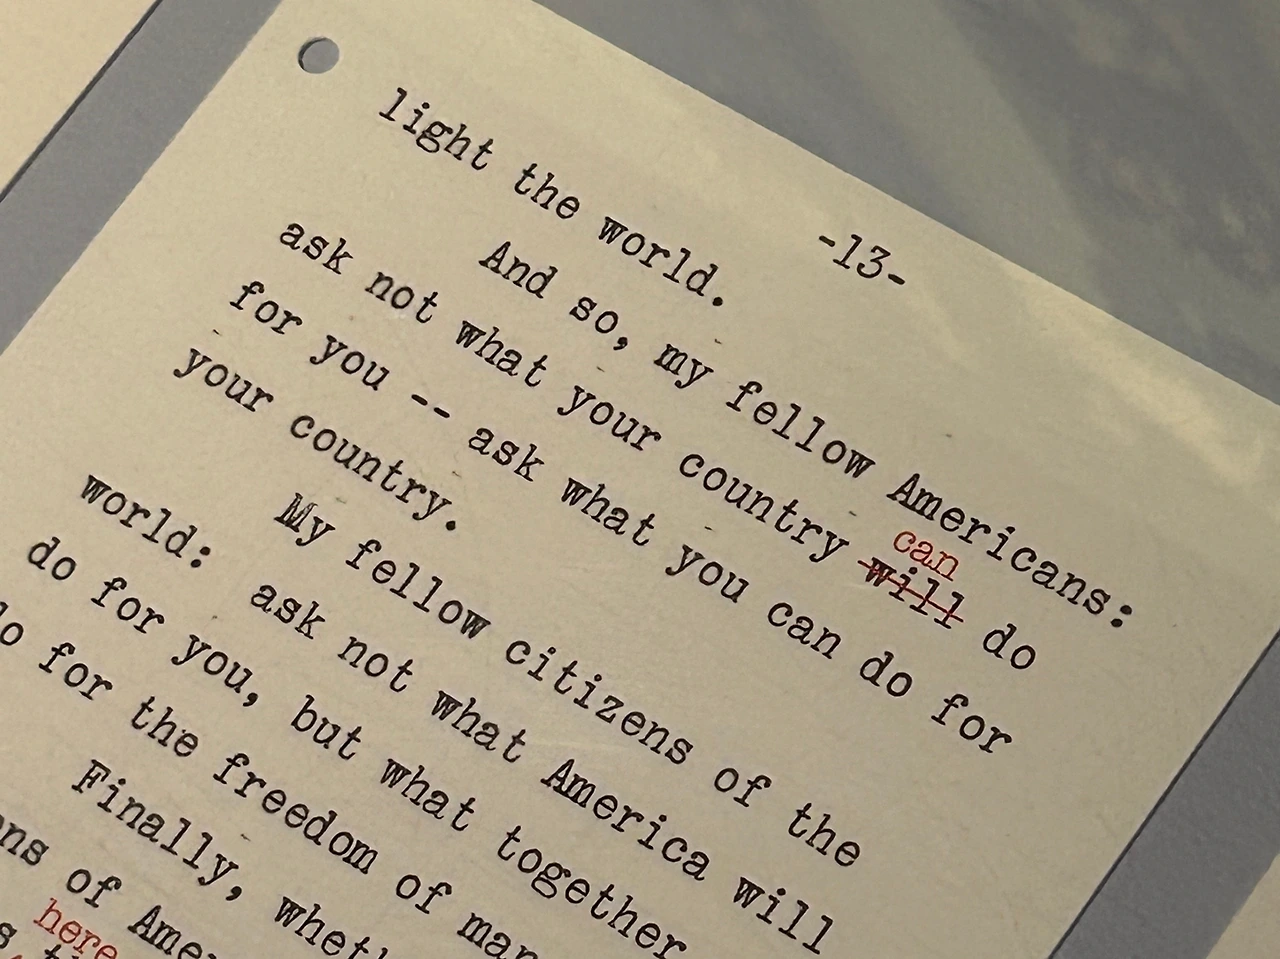 -13-
light the world.
And so, my fellow Americans:
ask not what your country will can do
for you -- ask what you can do for
your country.
My fellow citizens of the
world: ask not what America will
do for you, but what together
for the freedom of man
Finally,
of
here